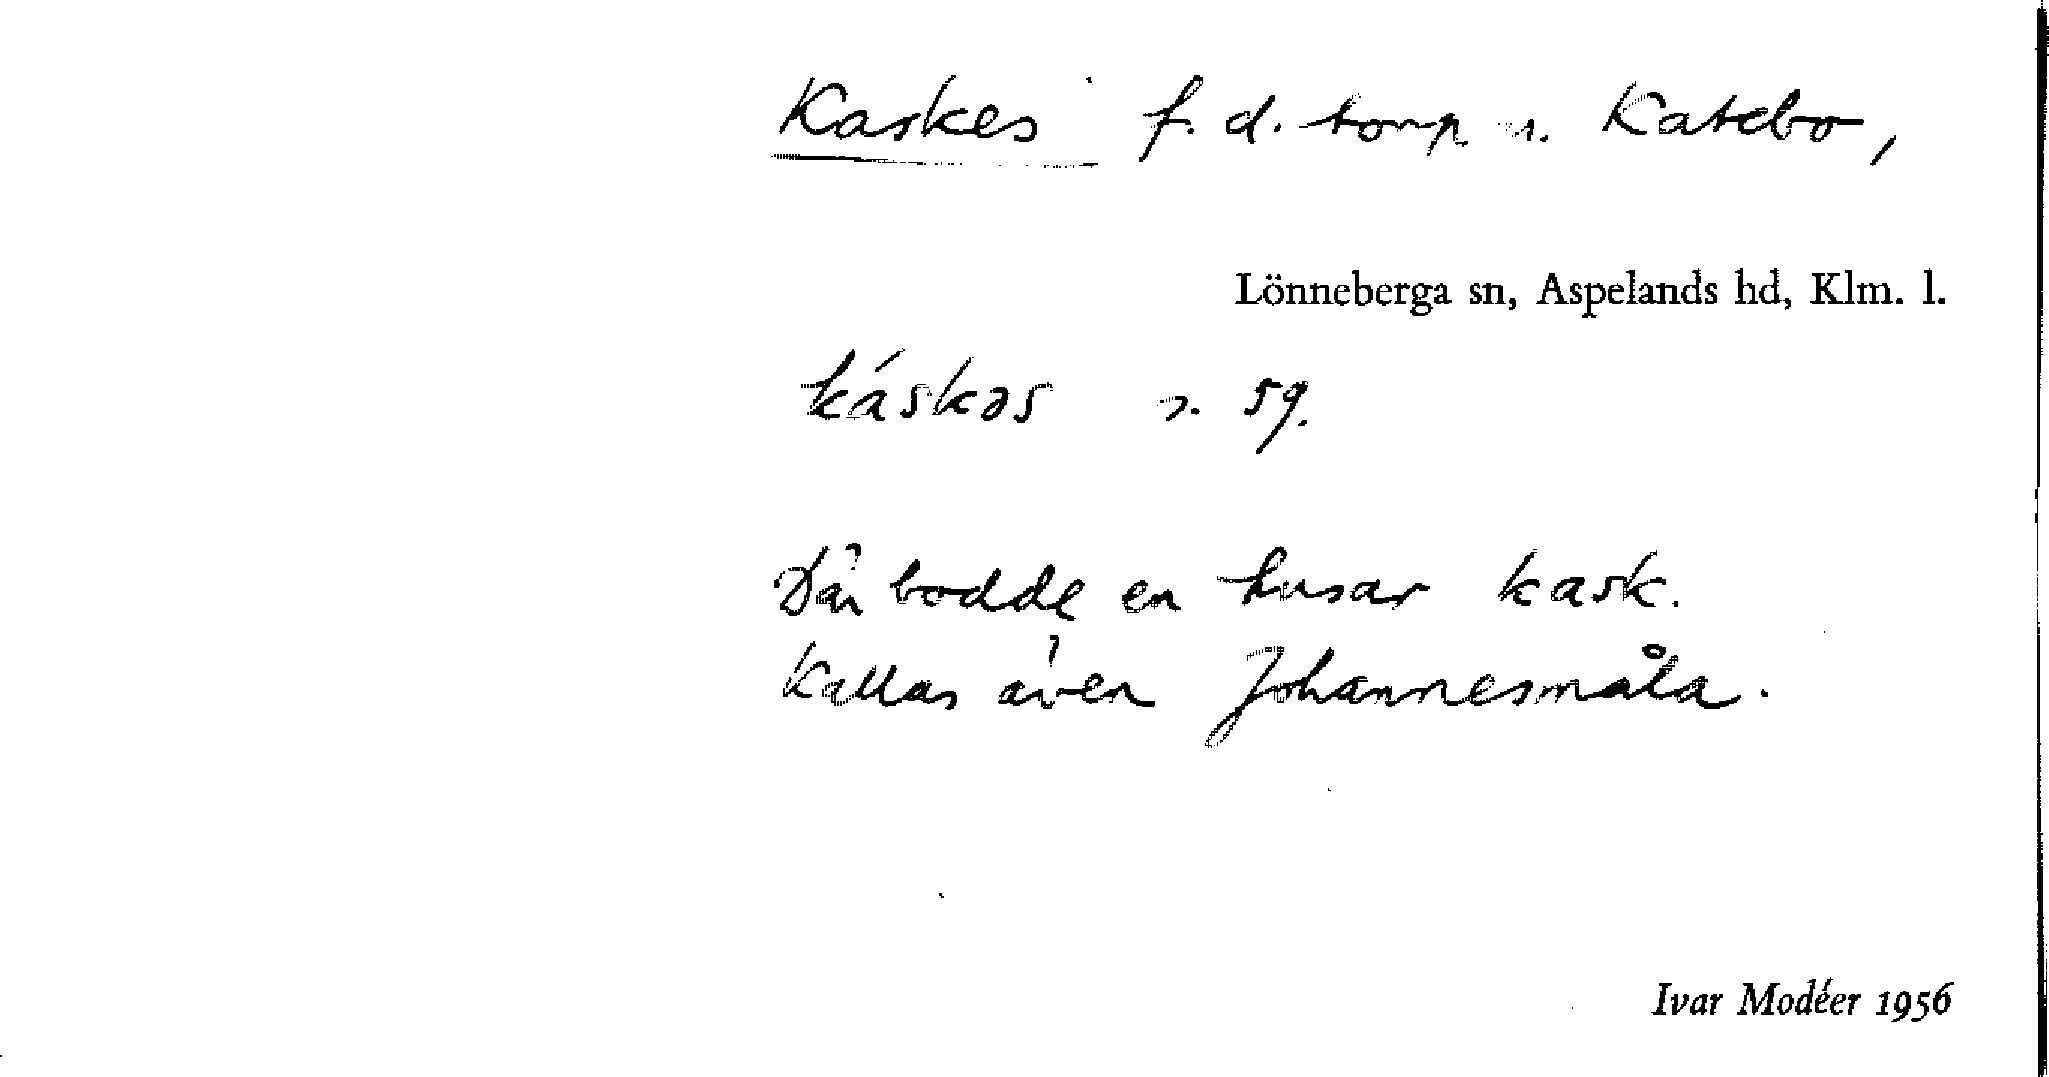 Kaskes f. d. torp u. Katebo,
Lönneberga sn, Aspelands hd, Klm. l.
káskəs n. sg.
Där bodde en husar Kask.
Kallas även Johannesmåla.
Ivar Modéer 1956